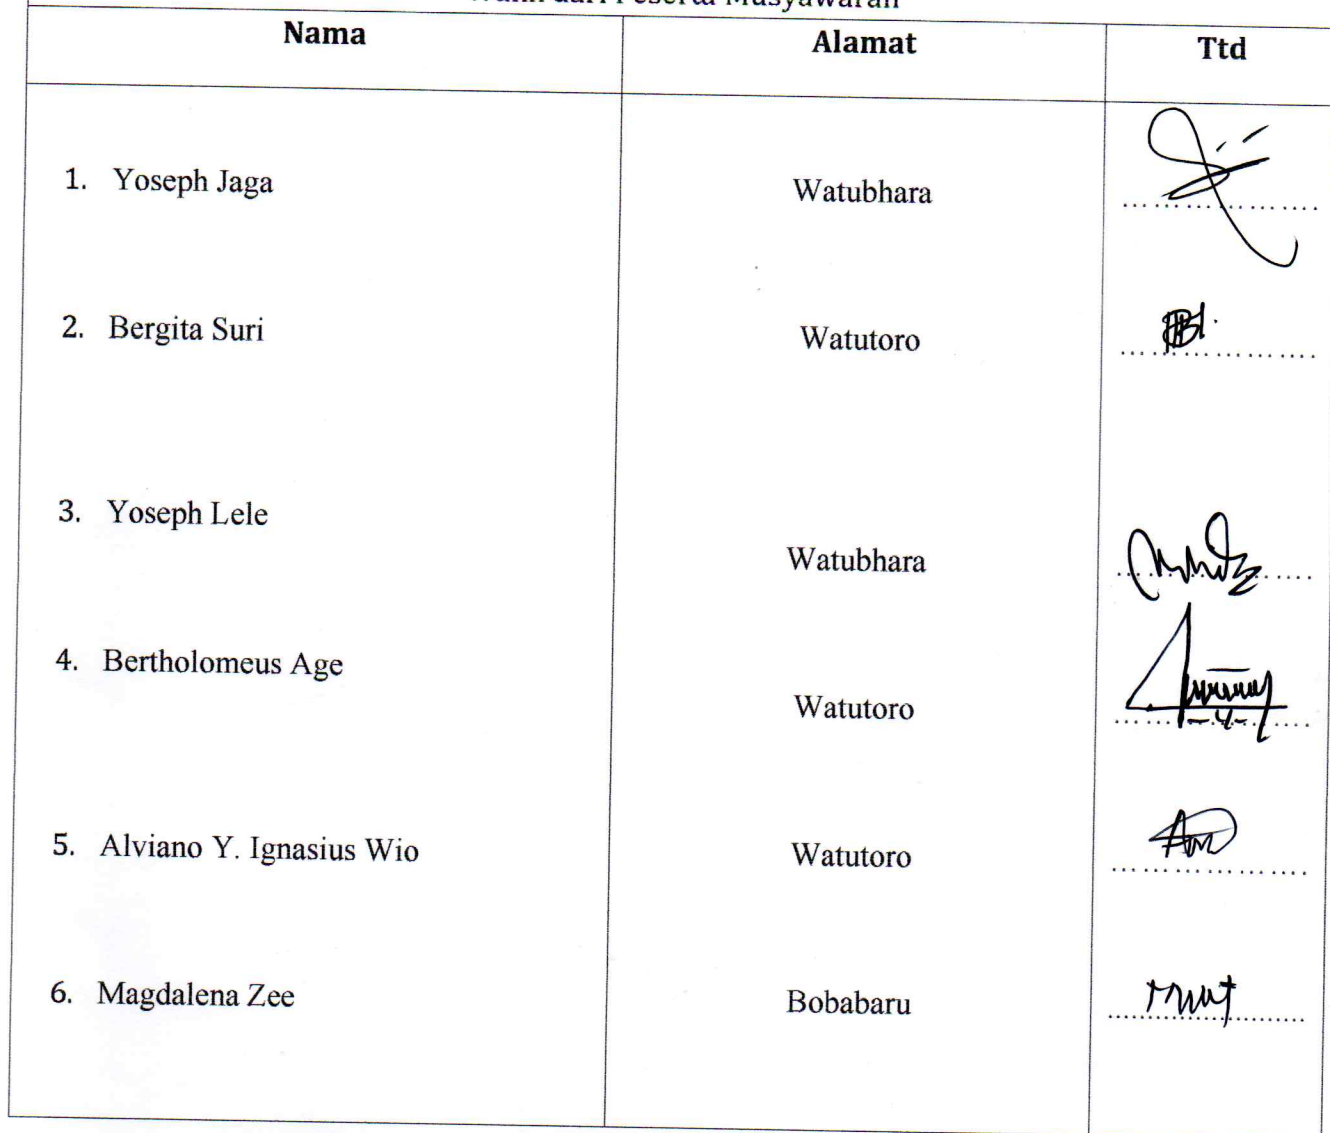 dari Peserta Musyawarah
Nama Alamat Ttd
1. Yoseph Jaga Watubhara ..................
2. Bergita Suri Watutoro ..................
3. Yoseph Lele
Watubhara ..................
4. Bertholomeus Age
Watutoro ..................
5. Alviano Y. Ignasius Wio Watutoro ..................
6. Magdalena Zee Bobabaru ..................